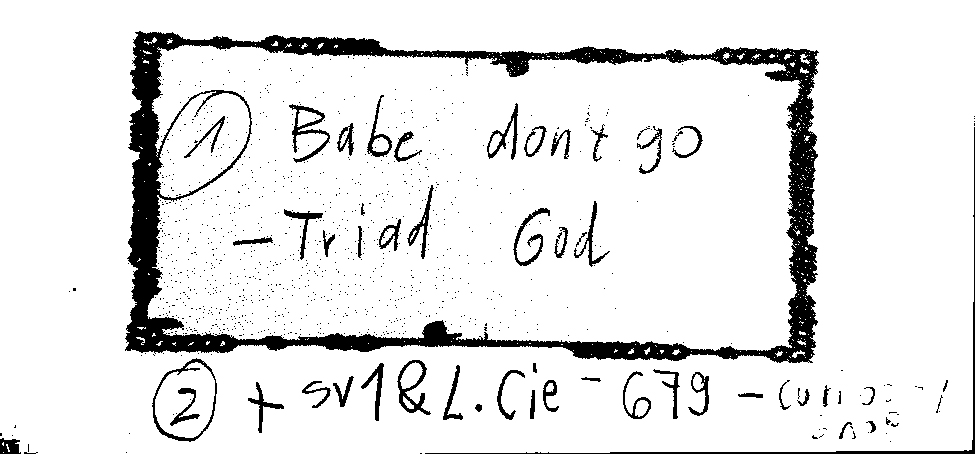 1 Babe don't go
- Triad God
2 + sv1 & L. Cie - 679 -